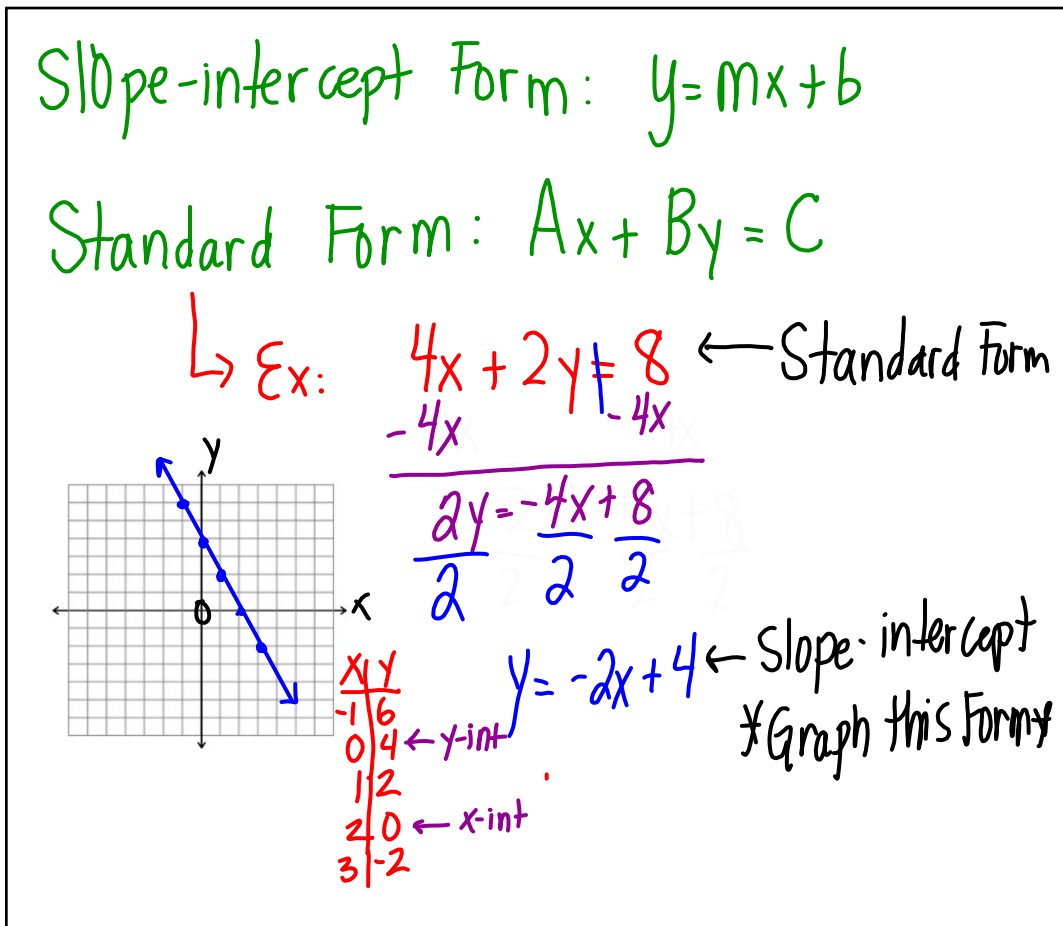 Slope-intercept Form: y=mx+b
Standard Form: Ax + By = C
Ex: 4x + 2y = 8 ← Standard Form
-4x -4x
2y = -4x + 8
2 2 2
y = -2x + 4 ← Slope-intercept
*Graph this Form*
y
0 x
x y
-1 6
0 4 ← y-int
1 2
2 0 ← x-int
3 -2